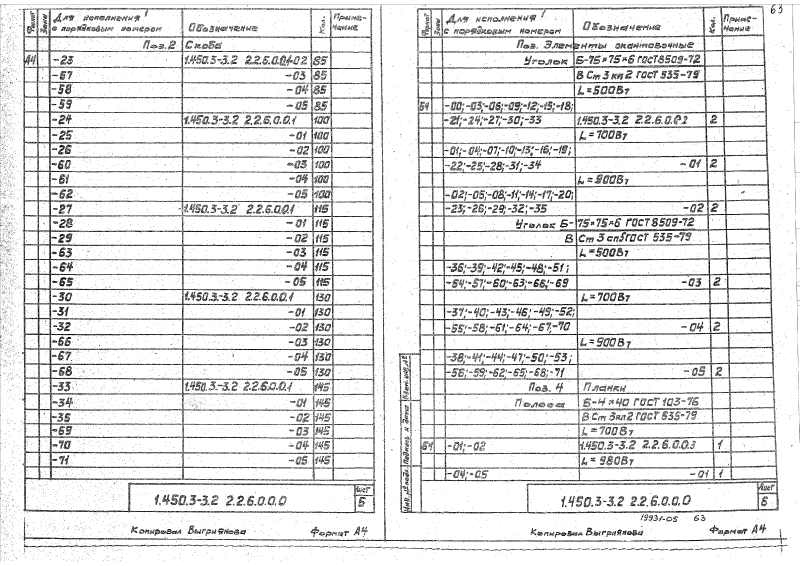 63
Формат
Зона
Для исполнения
с порядковым номером
Обозначение
Кол.
Приме-
чание
Поз.2 Скоба
А4 -23 1.450.3-3.2 2.2.6.0.0.1-02 85
-57 -03 85
-58 -04 85
-59 -05 85
-24 1.450.3-3.2 2.2.6.0.0.1 100
-25 -01 100
-26 -02 100
-60 -03 100
-61 -04 100
-62 -05 100
-27 1.450.3-3.2 2.2.6.0.0.1 115
-28 -01 115
-29 -02 115
-63 -03 115
-64 -04 115
-65 -05 115
-30 1.450.3-3.2 2.2.6.0.0.1 130
-31 -01 130
-32 -02 130
-66 -03 130
-67 -04 130
-68 -05 130
-33 1.450.3-3.2 2.2.6.0.0.1 145
-34 -01 145
-35 -02 145
-69 -03 145
-70 -04 145
-71 -05 145
1.450.3-3.2 2.2.6.0.0.0
Лист
5
Копировал Выгриянова Формат А4
Формат
Зона
Для исполнения
с порядковым номером
Обозначение
Кол.
Приме-
чание
Поз. Элементы окантовочные
Уголок Б-75×75×6 ГОСТ 8509-72
В Ст 3 кп2 ГОСТ 535-79
L=500 Вт
БЧ -00;-03;-06;-09;-12;-15;-18;
-21;-24;-27;-30;-33 1.450.3-3.2 2.2.6.0.0.2 2
L=700 Вт
-01;-04;-07;-10;-13;-16;-19;
-22;-25;-28;-31;-34 -01 2
L=900 Вт
-02;-05;-08;-11;-14;-17;-20;
-23;-26;-29;-32;-35 -02 2
Уголок Б-75×75×6 ГОСТ 8509-72
В Ст 3 сп5 ГОСТ 535-79
L=500 Вт
-36;-39;-42;-45;-48;-51;
-54;-57;-60;-63;-66;-69 -03 2
L=700 Вт
-37;-40;-43;-46;-49;-52;
-55;-58;-61;-64;-67;-70 -04 2
L=900 Вт
-38;-41;-44;-47;-50;-53;
-56;-59;-62;-65;-68;-71 -05 2
Поз. 4 Планки
Полоса Б-4×40 ГОСТ 103-76
В Ст 3 кп2 ГОСТ 535-79
L=700 Вт
БЧ -01;-02 1.450.3-3.2 2.2.6.0.0.3 1
L=980 Вт
-04;-05 -01 1
Инв.№ подл. Подпись и дата Взам.инв.№
1.450.3-3.2 2.2.6.0.0.0
Лист
6
19931-05 63
Копировал Выгриянова Формат А4